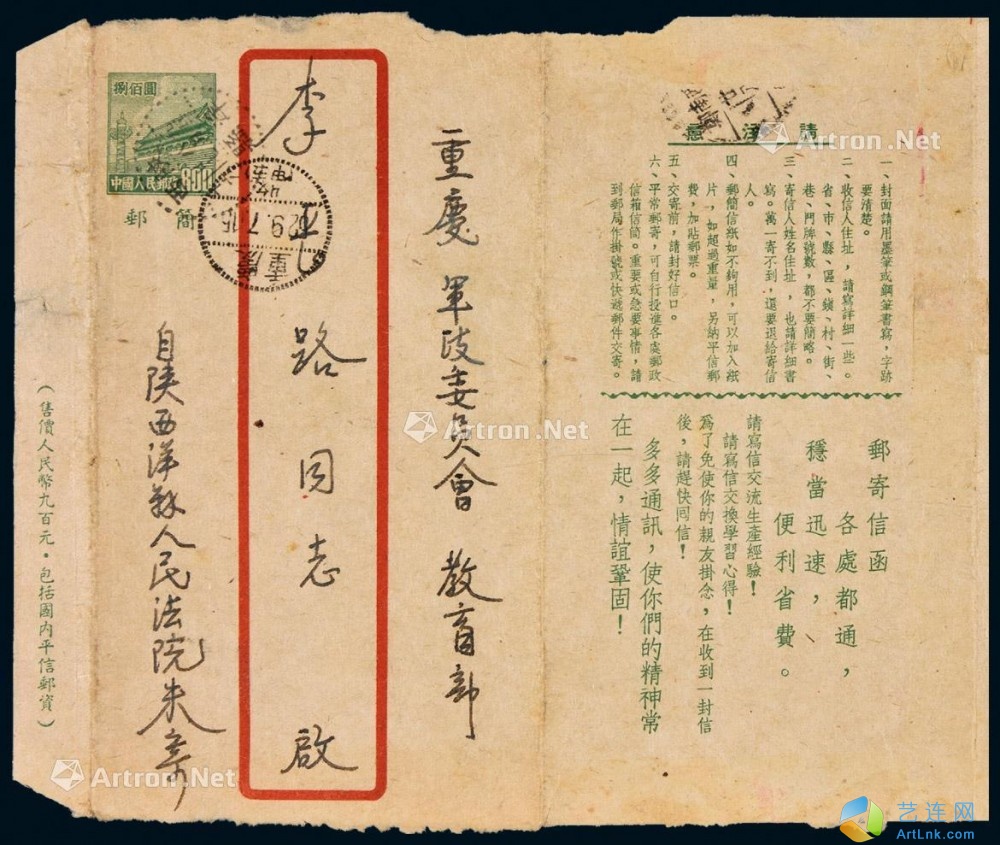 請注意
一、封面請用墨筆或鋼筆書寫，字跡
要清楚。
二、收信人住址，請寫詳細一些。
省、市、縣、區、鎮、村、街、
巷、門牌號數，都不要簡略。
三、寄信人姓名住址，也請詳細書
寫。萬一寄不到，還要退給寄信
人。
四、郵簡信紙如不夠用，可以加入紙
片，如超過重量，另納平信郵
費，加貼郵票。
五、交寄前，請封好信口。
六、平常郵寄，可自行投進各處郵政
信箱信筒。重要或急要事情，請
到郵局作掛號或快遞郵件交寄。
郵寄信函
各處都通，
穩當迅速，
便利省費。
請寫信交流生產經驗！
請寫信交換學習心得！
為了免使你的親友掛念，在收到一封信
後，請趕快回信！
多多通訊，使你們的精神常
在一起，情誼鞏固！
重慶 軍政委員會 教育部
李 路同志 啟
自陝西洋縣人民法院朱寄
捌佰圓
中國人民郵政
800
郵簡
重慶
（售價人民幣九百元。包括國內平信郵資）
Artron.Net
Artron.Net
Artron.Net
Artron.Net
艺连网
ArtLnk.com